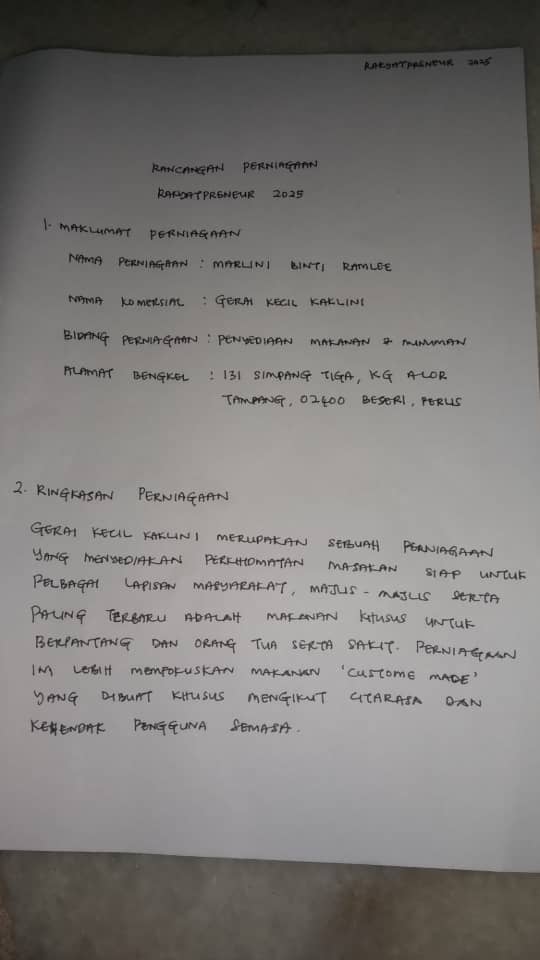 RAKYATPRENEUR 2025
RANCANGAN PERNIAGAAN
RAKYATPRENEUR 2025
1. MAKLUMAT PERNIAGAAN
NAMA PERNIAGAAN : MARLINI BINTI RAMLEE
NAMA KOMERSIAL : GERAI KECIL KAKLINI
BIDANG PERNIAGAAN : PENYEDIAAN MAKANAN & MINUMAN
ALAMAT BENGKEL : 131 SIMPANG TIGA, KG ALOR
TAMPANG, 02400 BESERI, PERLIS
2. RINGKASAN PERNIAGAAN
GERAI KECIL KAKLINI MERUPAKAN SEBUAH PERNIAGAAN
YANG MENYEDIAKAN PERKHIDMATAN MASAKAN SIAP UNTUK
PELBAGAI LAPISAN MASYARAKAT, MAJLIS - MAJLIS SERTA
PALING TERBARU ADALAH MAKANAN KHUSUS UNTUK
BERPANTANG DAN ORANG TUA SERTA SAKIT. PERNIAGAAN
INI LEBIH MEMPOKUSKAN MAKANAN 'CUSTOME MADE'
YANG DIBUAT KHUSUS MENGIKUT CITARASA DAN
KEHENDAK PENGGUNA SEMASA.